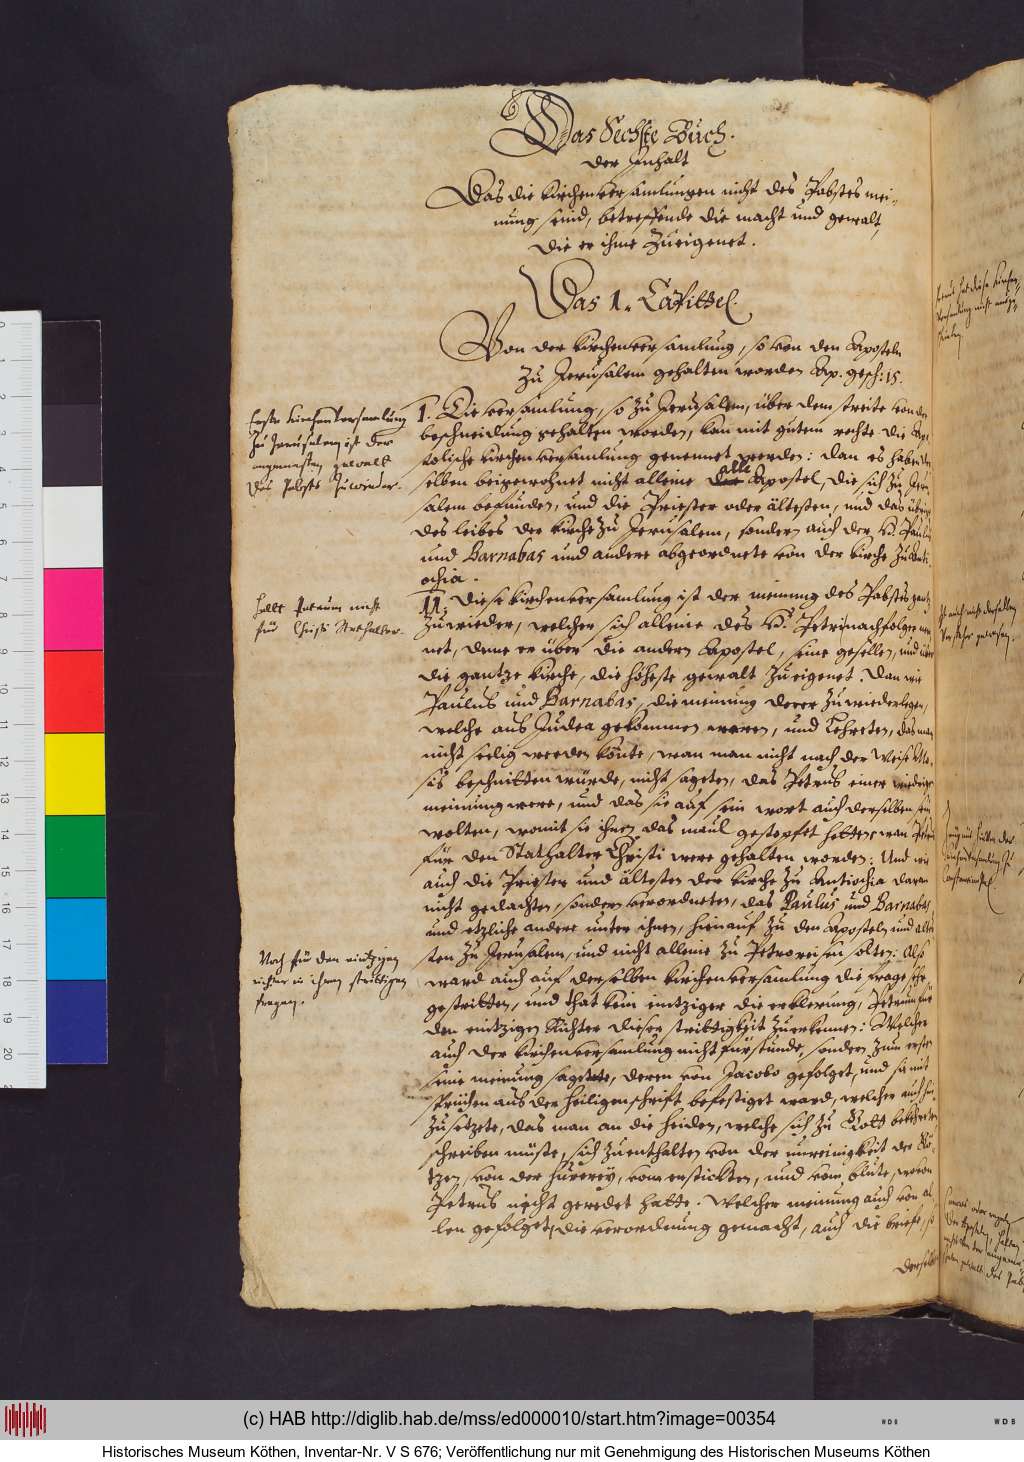 Das Sechste Buch.
der Inhalt
Das die Kirchenversamlungen nicht des Pabstes mei-
nung seind, betreffende die macht und gewalt,
die er ihme zueigenet.
Das 1. Capittel.
Von der Kirchenversamlung, so von den Aposteln
zu Jerusalem gehalten worden Ap. gesch: 15.
Erste Kirchenversamlung
zu Jerusalem ist der
angemasten gewalt
des Pabsts zuwieder.
I. Die versamlung, so zu Jerusalem, über dem streite von der
beschneidung gehalten worden, kan mit gutem rechte die Apo-
stolische Kirchenversamlung genennet werden: dan es haben der
selben beigewohnet nicht alleine alle Apostel, die sich zu Jeru-
salem befunden, und die Priester oder ältesten, und das übrige
des leibes der Kirche zu Jerusalem, sondern auch der H. Paulus
und Barnabas und andere abgeordnete von der Kirche zu Anti-
ochia.
Hellt Petrum nicht
für Christi Stathalter.
II. Diese Kirchenversamlung ist der meinung des Pabstes gantz
zuwieder, welcher sich alleine des H. Petri nachfolger nen-
net, deme er über die andern Apostel, seine gesellen, und über
die gantze Kirche, die höheste gewalt zueigenet. Dan wie
Paulus und Barnabas, die meinung derer zuwiederlegen,
welche aus Judea gekommen waren, und lehreten, das man
nicht seelig werden könte, wan man nicht nach der Weise Mo-
sis beschnitten würde, nicht sageten, das Petrus einer wiedrigen
meinung were, und das sie auf sein wort auch derselben sein
wolten, womit sie ihnen das maul gestopfet hetten, wan Petrus
für den Stathalter Christi were gehalten worden: Und wie
auch die Priester und ältesten der Kirche zu Antiochia daran
nicht gedachten, sondern verordneten, das Paulus und Barnabas
und etzliche andere unter ihnen, hienauf zu den Aposteln und älte-
sten zu Jerusalem, und nicht alleine zu Petro reisen solten: Also
Noch für den eintzigen
richter in ihren strittigen
fragen.
ward auch auf derselben Kirchenversamlung die frage sehr
gestritten, und that kein eintziger die erklerung, Petrum für
den eintzigen Richter dieser strittigkeit zuerkennen: Welcher
auch der Kirchenversamlung nicht fürstunde, sondern zum ersten
seine meinung sagete, deren von Jacobo gefolget, und sie mit
sprüchen aus der heiligen schrift befestiget ward, welcher auch hin-
zusetzete, das man an die heiden, welche sich zu Gott bekehreten
schreiben müste, sich zuenthalten von der unreinigkeit der Gö-
tzen, von der hurerey, vom erstickten, und vom blute, wovon
Petrus nicht geredet hatte. Welcher meinung auch von al-
len gefolget, die verordnung gemacht, auch die briefe, so
derselben
(c) HAB http://diglib.hab.de/mss/ed000010/start.htm?image=00354
WDB
WDB
Historisches Museum Köthen, Inventar-Nr. V S 676; Veröffentlichung nur mit Genehmigung des Historischen Museums Köthen